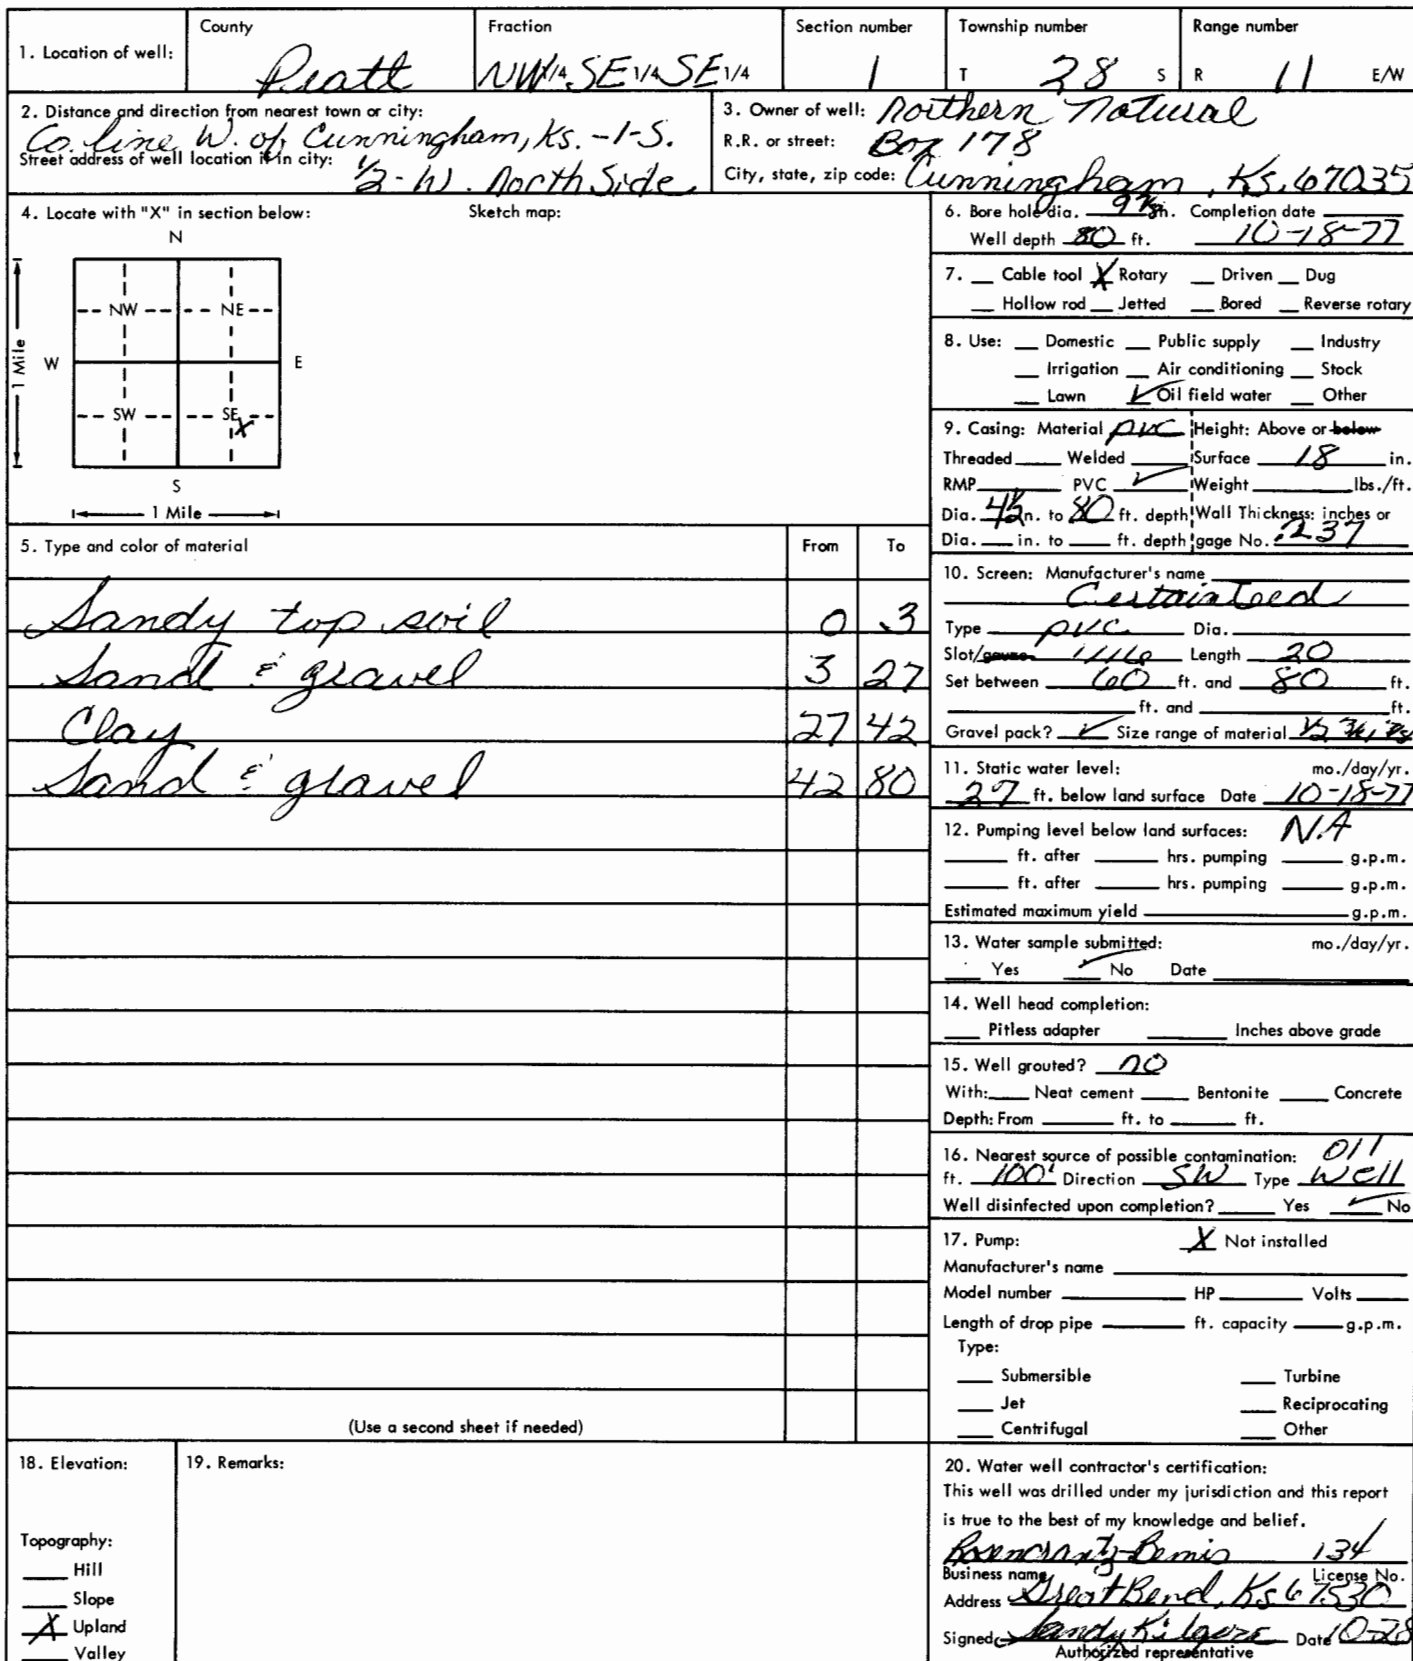 1. Location of well:
County
Pratt
Fraction
NW 1/4 SE 1/4 SE 1/4
Section number
1
Township number
T 28 S
Range number
R 11 E/W
2. Distance and direction from nearest town or city:
Co. line W. of Cunningham, Ks. -1-S.
Street address of well location if in city:
1/2 - W. North Side
3. Owner of well: Northern Natural
R.R. or street: Box 178
City, state, zip code: Cunningham, Ks. 67035
4. Locate with "X" in section below:
Sketch map:
N
NW NE
W E
1 Mile
SW SE X
S
1 Mile
5. Type and color of material From To
Sandy top soil 0 3
Sand & gravel 3 27
Clay 27 42
Sand & gravel 42 80
(Use a second sheet if needed)
6. Bore hole dia. 9 7/8 in. Completion date
Well depth 80 ft. 10-18-77
7. Cable tool X Rotary Driven Dug
Hollow rod Jetted Bored Reverse rotary
8. Use: Domestic Public supply Industry
Irrigation Air conditioning Stock
Lawn ✓ Oil field water Other
9. Casing: Material PVC Height: Above or below
Threaded Welded Surface 18 in.
RMP PVC ✓ Weight lbs./ft.
Dia. 4 1/2 in. to 80 ft. depth Wall Thickness: inches or
Dia. in. to ft. depth gage No. .237
10. Screen: Manufacturer's name
Certainteed
Type PVC Dia.
Slot/gauze 1/16 Length 20
Set between 60 ft. and 80 ft.
ft. and ft.
Gravel pack? ✓ Size range of material
11. Static water level: mo./day/yr.
27 ft. below land surface Date 10-18-77
12. Pumping level below land surfaces: N.A
ft. after hrs. pumping g.p.m.
ft. after hrs. pumping g.p.m.
Estimated maximum yield g.p.m.
13. Water sample submitted: mo./day/yr.
Yes ✓ No Date
14. Well head completion:
Pitless adapter Inches above grade
15. Well grouted? no
With: Neat cement Bentonite Concrete
Depth: From ft. to ft.
16. Nearest source of possible contamination: Oil
ft. 100' Direction SW Type Well
Well disinfected upon completion? Yes ✓ No
17. Pump: X Not installed
Manufacturer's name
Model number HP Volts
Length of drop pipe ft. capacity g.p.m.
Type:
Submersible Turbine
Jet Reciprocating
Centrifugal Other
18. Elevation:
Topography:
Hill
Slope
X Upland
Valley
19. Remarks:
20. Water well contractor's certification:
This well was drilled under my jurisdiction and this report
is true to the best of my knowledge and belief.
Rosencrantz-Bemis 134
Business name License No.
Address Great Bend, Ks 67530
Signed Sandy Kilgore Date 10-28
Authorized representative